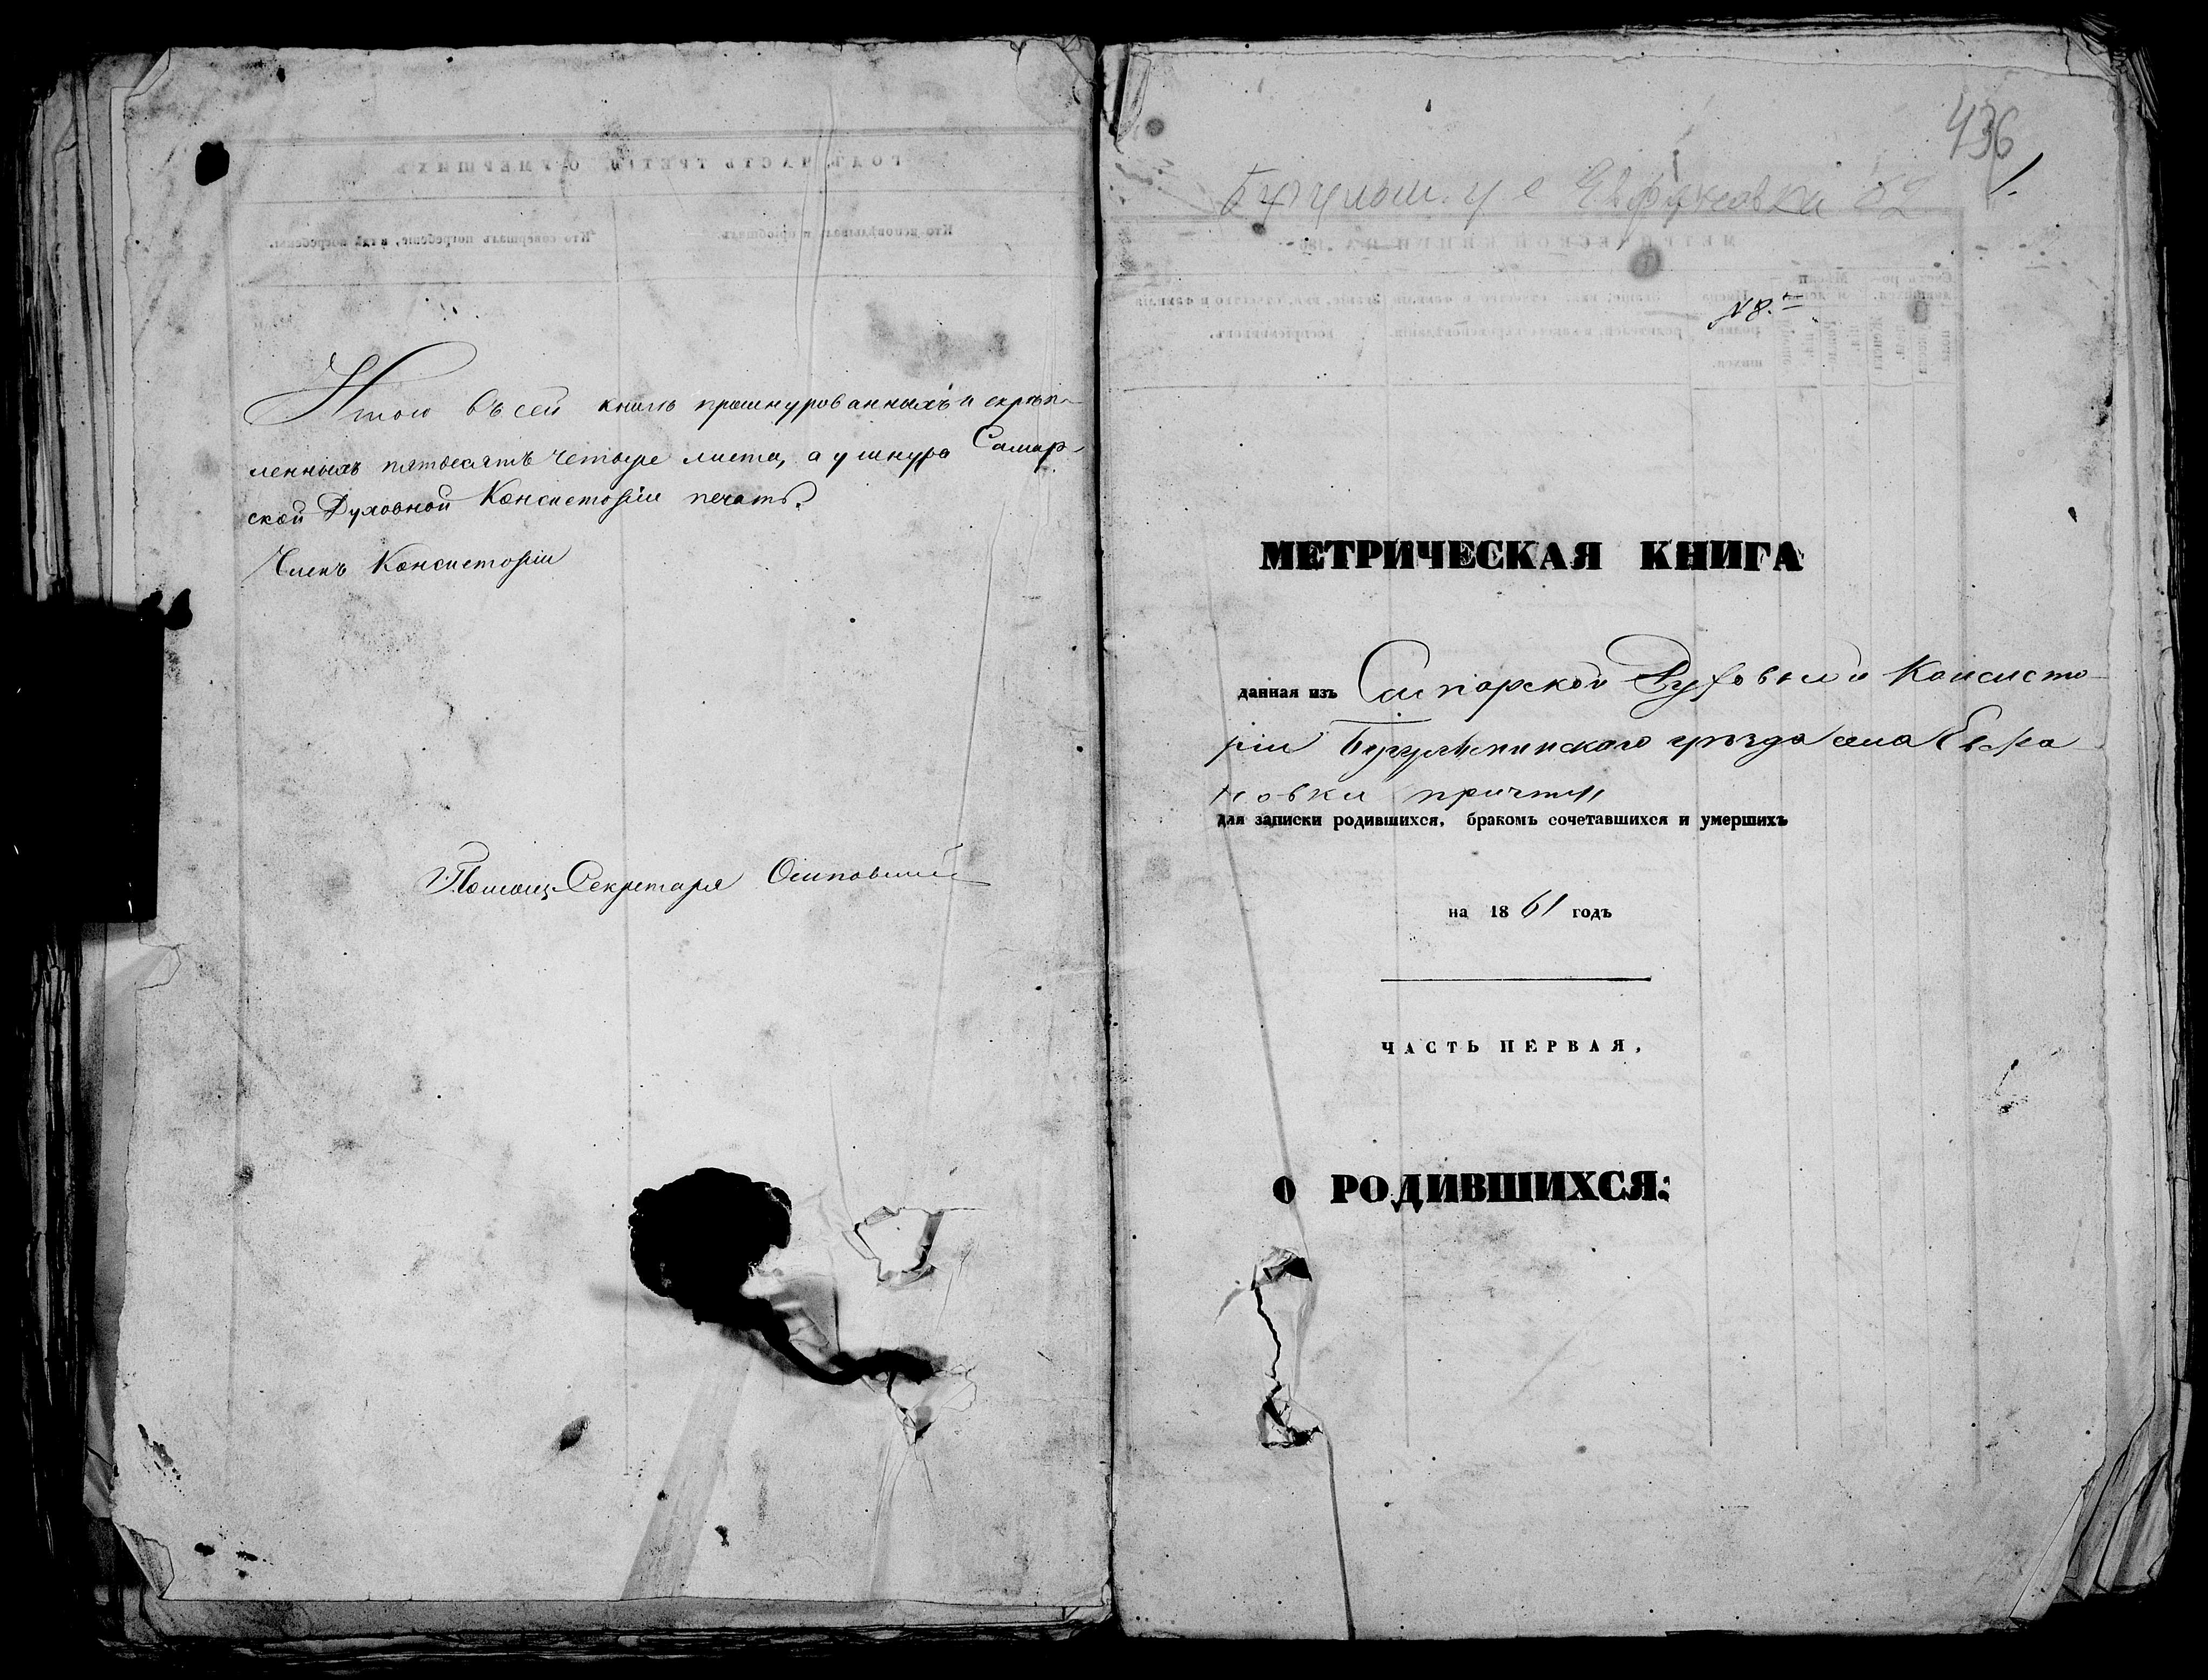 Итого въ сей книгѣ прошнурованныхъ и скрѣп-
ленныхъ пятьдесятъ четыре листа, а у шнура Самар-
ской Духовной Консисторіи печать.
Членъ Консисторіи
Помощ. Секретаря
436
1.
Бугульм. у с
62
№ 8.
МЕТРИЧЕСКАЯ КНИГА
данная изъ Самарской Духовной Консисто-
ріи Бугульминскаго уѣзда села
новки причту
для записки родившихся, бракомъ сочетавшихся и умершихъ
на 1861 годъ
ЧАСТЬ ПЕРВАЯ,
О РОДИВШИХСЯ: